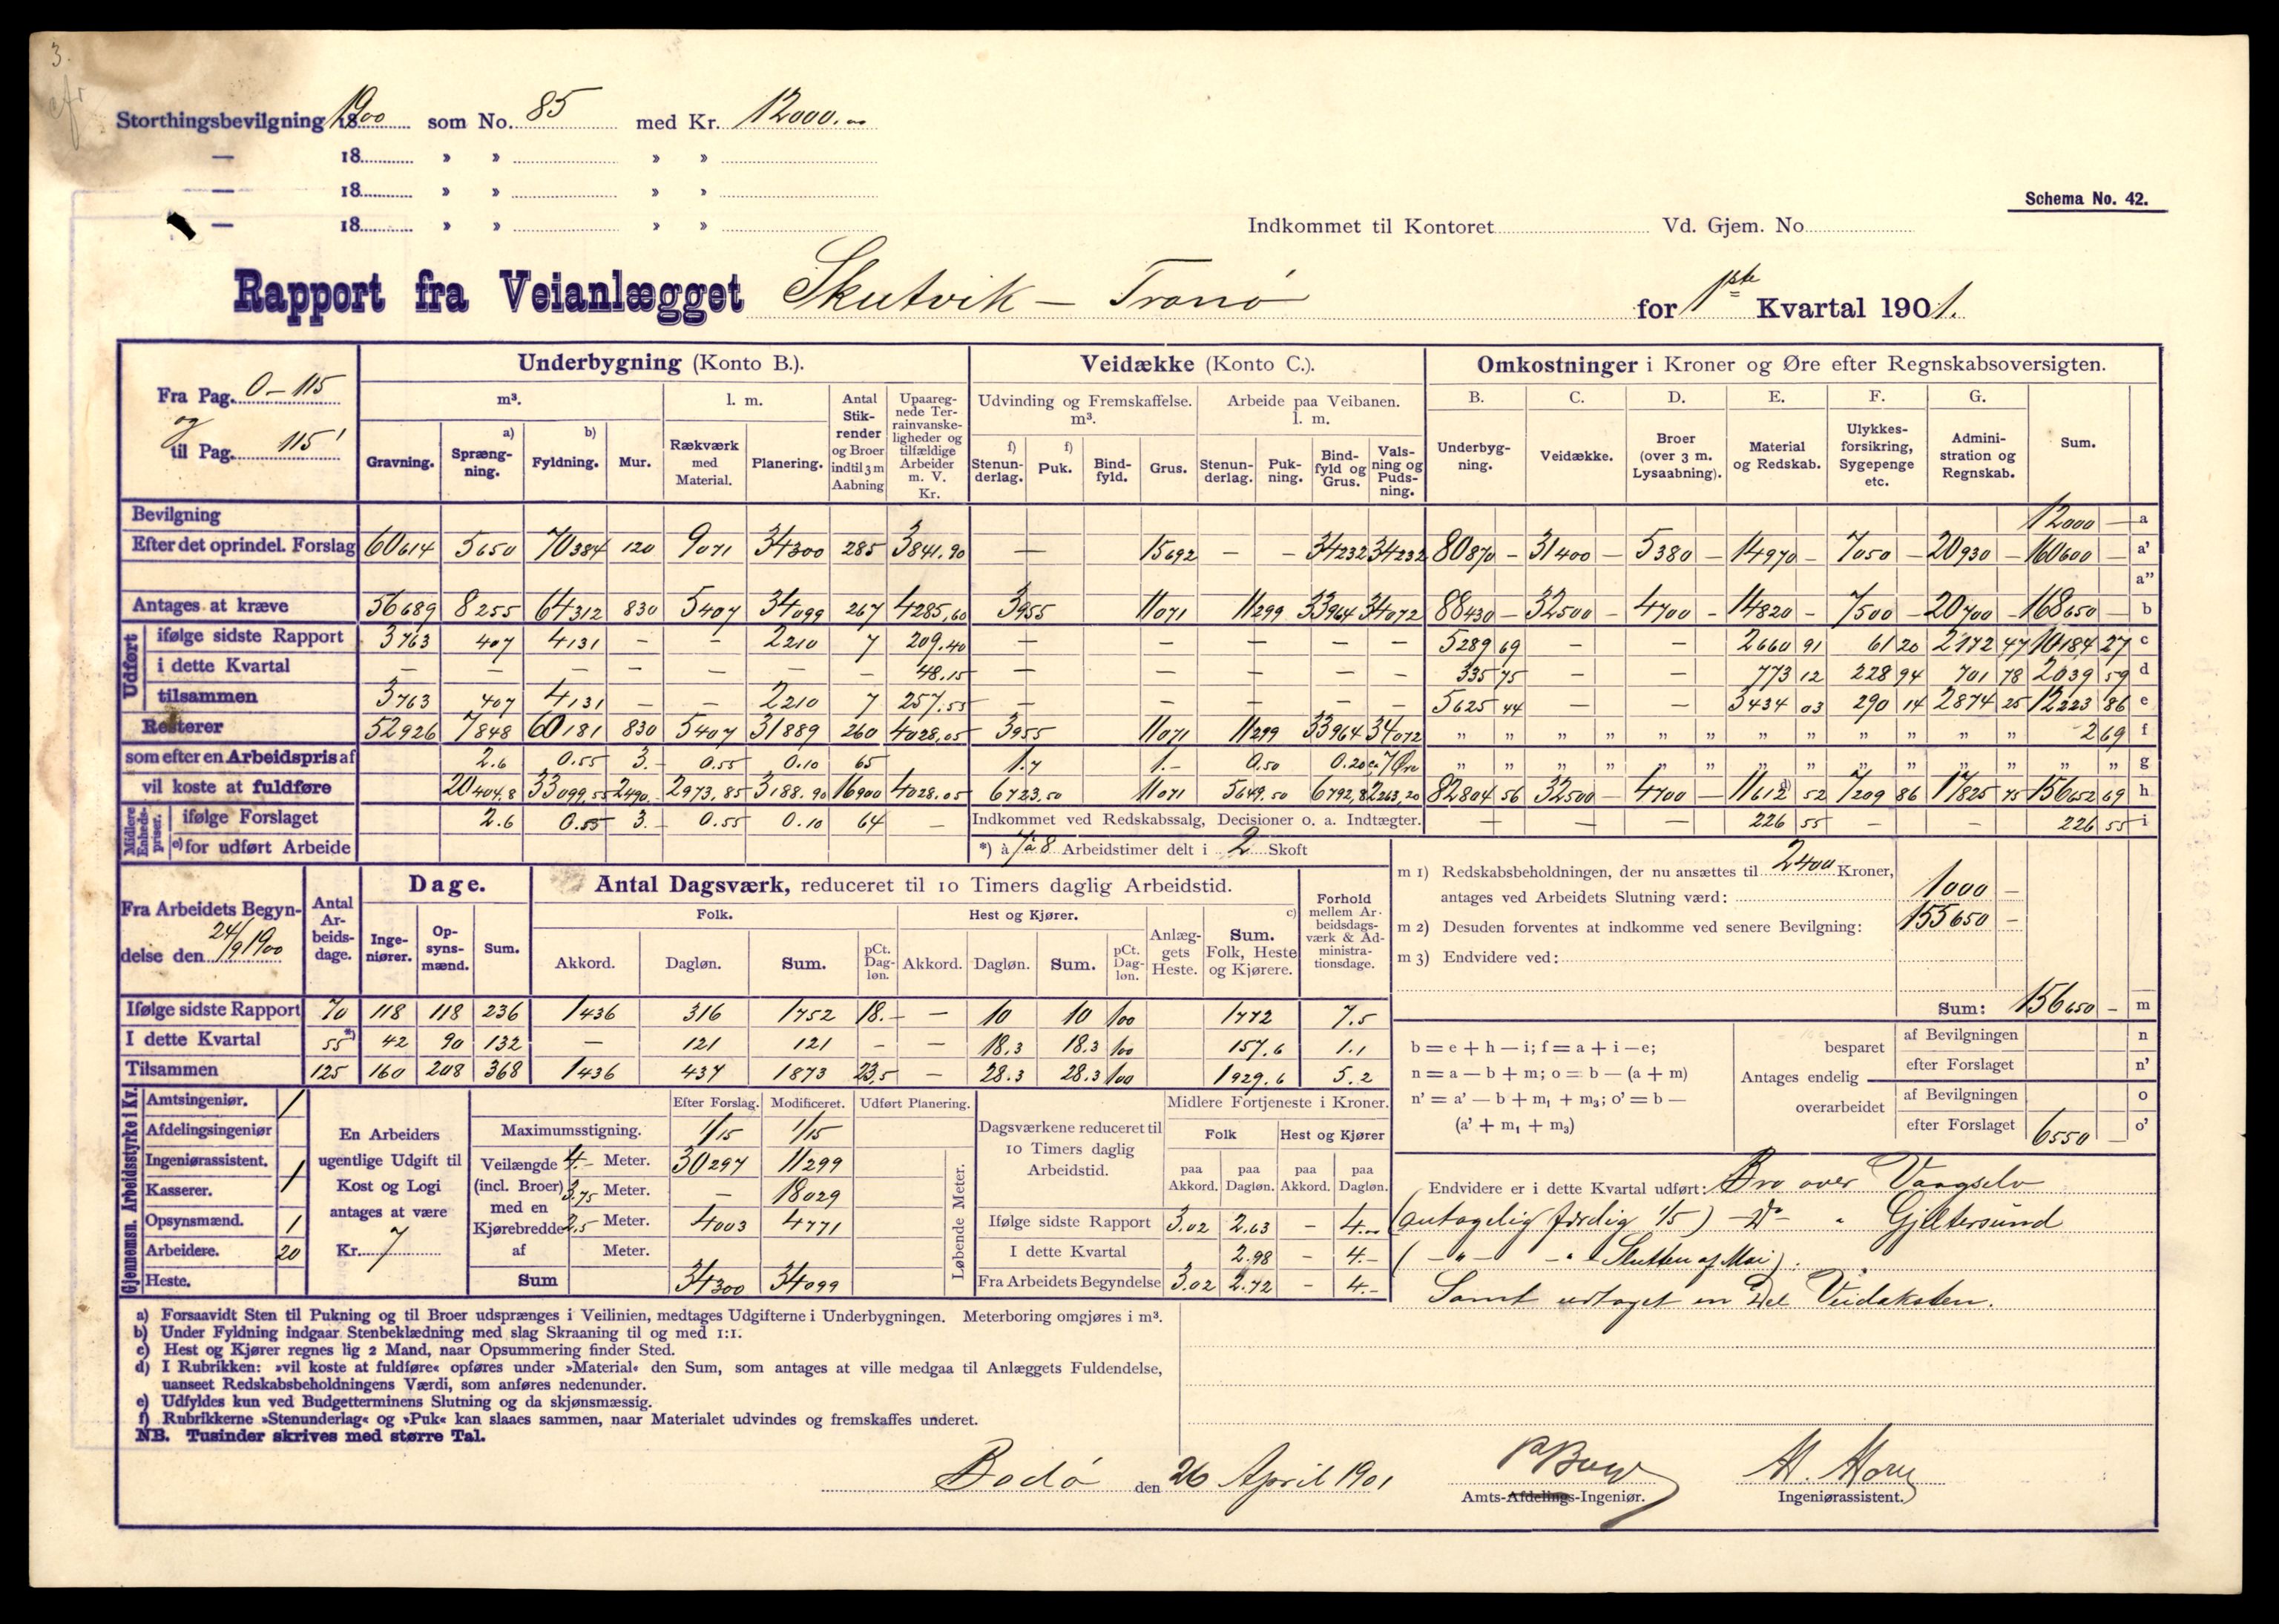 3.
Storthingsbevilgning 1900 som No. 85 med Kr. 12000.00
— 18 » » » »
— 18 » » » »
— 18 » » » »
Schema No. 42.
Indkommet til Kontoret Vd. Gjem. No
Rapport fra Veianlægget Skutvik — Tranø for 1ste Kvartal 1901.
Fra Pag. 0 — 115
og
til Pag. 115'
Underbygning (Konto B.).
m³. l. m.
Gravning. a) Sprængning. b) Fyldning. Mur. Rækværk med Material. Planering. Antal Stikrender og Broer indtil 3 m Aabning Upaaregnede Terrainvanskeligheder og tilfældige Arbeider m. V. Kr.
Veidække (Konto C.).
Udvinding og Fremskaffelse. m³. Arbeide paa Veibanen. l. m.
f) Stenunderlag. f) Puk. Bindfyld. Grus. Stenunderlag. Pukning. Bindfyld og Grus. Valsning og Pudsning.
Omkostninger i Kroner og Øre efter Regnskabsoversigten.
B. Underbygning. C. Veidække. D. Broer (over 3 m. Lysaabning). E. Material og Redskab. F. Ulykkesforsikring, Sygepenge etc. G. Administration og Regnskab. Sum.
Bevilgning 12000 — a
Efter det oprindel. Forslag 60614 5650 70384 120 9071 34300 285 3841.90 — 15692 — — 34232 34232 80870 — 31400 — 5380 — 14970 — 7050 — 20930 — 160600 — a'
a"
Antages at kræve 56689 8255 64312 830 5407 34099 267 4285,60 3955 11071 11299 33964 34072 88430 — 32500 — 4700 — 14820 — 7500 — 20700 — 168650 — b
Udført
ifølge sidste Rapport 3763 407 4131 — — 2210 7 209.40 — — — — — 5289 69 — — 2660 91 61 20 2172 47 10184 27 c
i dette Kvartal — — — — — — — 48.15 — — — — — 335 75 — — 773 12 228 94 701 78 2039 59 d
tilsammen 3763 407 4131 — — 2210 7 257.55 — — — — — 5625 44 — — 3434 03 290 14 2874 25 12223 86 e
Resterer 52926 7848 60181 830 5407 31889 260 4028,05 3955 11071 11299 33964 34072 „ „ „ „ „ „ „ „ „ „ „ „ 2 69 f
som efter en Arbeidspris af 2.6 0.55 3.- 0.55 0.10 65 1.7 1.- 0.50 0.20 ca 7 Øre „ „ „ „ „ „ „ „ „ „ „ „ „ „ g
vil koste at fuldføre 20404.8 33099,55 2490.- 2973,85 3188.90 16900 4028.05 6723,50 11071 5649.50 6792,8 2263,20 82804 56 32500 — 4700 — d) 11612 52 7209 86 17825 75 156652 69 h
Midlere Enhedspriser.
ifølge Forslaget 2.6 0.55 3.- 0.55 0.10 64 — Indkommet ved Redskabssalg, Decisioner o. a. Indtægter. — — — 226 55 — — 226 55 i
e) for udført Arbeide *) à 7 à 8 Arbeidstimer delt i 2 Skoft
Fra Arbeidets Begyndelse den 24/9 1900
Antal Arbeidsdage.
Dage.
Ingeniører. Opsynsmænd. Sum.
Antal Dagsværk, reduceret til 10 Timers daglig Arbeidstid.
Folk. Hest og Kjører.
Akkord. Dagløn. Sum. pCt. Dagløn. Akkord. Dagløn. Sum. pCt. Dagløn. Anlæggets Heste. c) Sum. Folk, Heste og Kjørere.
Forhold mellem Arbeidsdagsværk & Administrationsdage.
Ifølge sidste Rapport 70 118 118 236 1436 316 1752 18.- — 10 10 100 1772 7.5
I dette Kvartal 55 *) 42 90 132 — 121 121 — — 18.3 18.3 100 157.6 1.1
Tilsammen 125 160 208 368 1436 437 1873 23,5 — 28.3 28.3 100 1929.6 5.2
m 1) Redskabsbeholdningen, der nu ansættes til 2400 Kroner,
antages ved Arbeidets Slutning værd: 1000 —
m 2) Desuden forventes at indkomme ved senere Bevilgning: 155650 —
m 3) Endvidere ved:
Sum: 156650 — m
b = e + h — i; f = a + i — e;
n = a — b + m; o = b — (a + m)
n' = a' — b + m₁ + m₃; o' = b —
(a' + m₁ + m₃)
Antages endelig
besparet af Bevilgningen n
efter Forslaget n'
overarbeidet af Bevilgningen o
efter Forslaget 6550 — o'
Gjennemsn. Arbeidsstyrke i Kv.
Amtsingeniør. 1
Afdelingsingeniør
Ingeniørassistent. 1
Kasserer.
Opsynsmænd. 1
Arbeidere. 20
Heste.
En Arbeiders ugentlige Udgift til Kost og Logi antages at være
Kr. 7
Efter Forslag. Modificeret. Udført Planering.
Maximumsstigning. 1/15 1/15
Veilængde (incl. Broer) med en Kjørebredde af
4.- Meter. 30297 11299
3.75 Meter. — 18029
2,5 Meter. 4003 4771
Meter.
Sum 34300 34099
Løbende Meter.
Dagsværkene reduceret til 10 Timers daglig Arbeidstid.
Midlere Fortjeneste i Kroner.
Folk Hest og Kjører
paa Akkord. paa Dagløn. paa Akkord. paa Dagløn.
Ifølge sidste Rapport 3.02 2.63 — 4.00
I dette Kvartal 2.98 — 4.-
Fra Arbeidets Begyndelse 3.02 2.72 — 4.-
Endvidere er i dette Kvartal udført: Bro over Vaagselv
(antagelig færdig 1/5) — Do „ Gjeltersund
( — „ — — „ Slutten af Mai).
Samt udtaget en Del Veidæksten.
a) Forsaavidt Sten til Pukning og til Broer udsprænges i Veilinien, medtages Udgifterne i Underbygningen. Meterboring omgjøres i m³.
b) Under Fyldning indgaar Stenbeklædning med slag Skraaning til og med 1:1.
c) Hest og Kjører regnes lig 2 Mand, naar Opsummering finder Sted.
d) I Rubrikken: »vil koste at fuldføre« opføres under »Material« den Sum, som antages at ville medgaa til Anlæggets Fuldendelse,
uanseet Redskabsbeholdningens Værdi, som anføres nedenunder.
e) Udfyldes kun ved Budgetterminens Slutning og da skjønsmæssig.
f) Rubrikkerne »Stenunderlag« og »Puk« kan slaaes sammen, naar Materialet udvindes og fremskaffes underet.
NB. Tusinder skrives med større Tal.
Bodø den 26 April 1901
Amts-Afdelings-Ingeniør.
Ingeniørassistent.